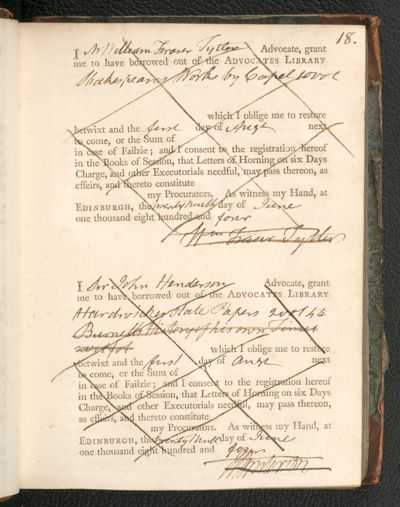 18.
I Mr William Fraser Tytler Advocate, grant
me to have borrowed out of the ADVOCATES LIBRARY
Shakespeares Works by Capel 10 vol
which I oblige me to restore
betwixt and the first day of Augt next
to come, or the Sum of
in case of Failzie; and I consent to the registration hereof
in the Books of Session, that Letters of Horning on six Days
Charge, and other Executorials needful, may pass thereon, as
effeirs, and thereto constitute
my Procurators. As witness my Hand, at
EDINBURGH, the twenty ninth day of June
one thousand eight hundred and four
Wm Fraser Tytler.
I Sir John Henderson Advocate, grant
me to have borrowed out of the ADVOCATES LIBRARY
Hardwickes State Papers 2 vol 44
Burnetts History of his own Times
which I oblige me to restore
betwixt and the first day of Augt next
to come, or the Sum of
in case of Failzie; and I consent to the registration hereof
in the Books of Session, that Letters of Horning on six Days
Charge, and other Executorials needful, may pass thereon,
as effeirs, and thereto constitute
my Procurators. As witness my Hand, at
EDINBURGH, the twenty ninth day of June
one thousand eight hundred and four